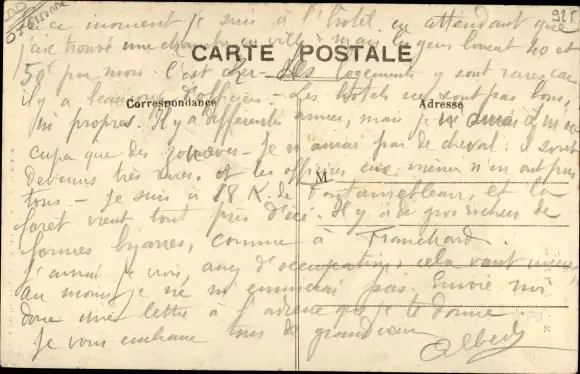 En ce moment je suis à l'hôtel en attendant que
j'aie trouvé une chambre en ville : mais les gens louent 40 et
CARTE POSTALE
50f par mois. C'est cher - Les logements y sont rares car
il y a beaucoup d'officiers. Les hôtels ne sont pas bons,
Correspondance
Adresse
ni propres. Il y a différentes armes, mais je ne m'oc
cupe que des zouaves. Je n'aurai pas de cheval : ils sont
devenus très rares. et les officiers eux-mêmes n'en ont pas
M
tous - je suis à 18 K. de Fontainebleau, et la
foret vient tout près d'ici. Il y a de gros rochers de
formes bizarres, comme à Franchard.
J'aurai je crois, assez d'occupations, cela vaut mieux,
au moins je ne m'ennuierai pas. Envoie moi
donc une lettre à l'adresse que je te donne.
Je vous embrasse tous de grand cœur
Albert